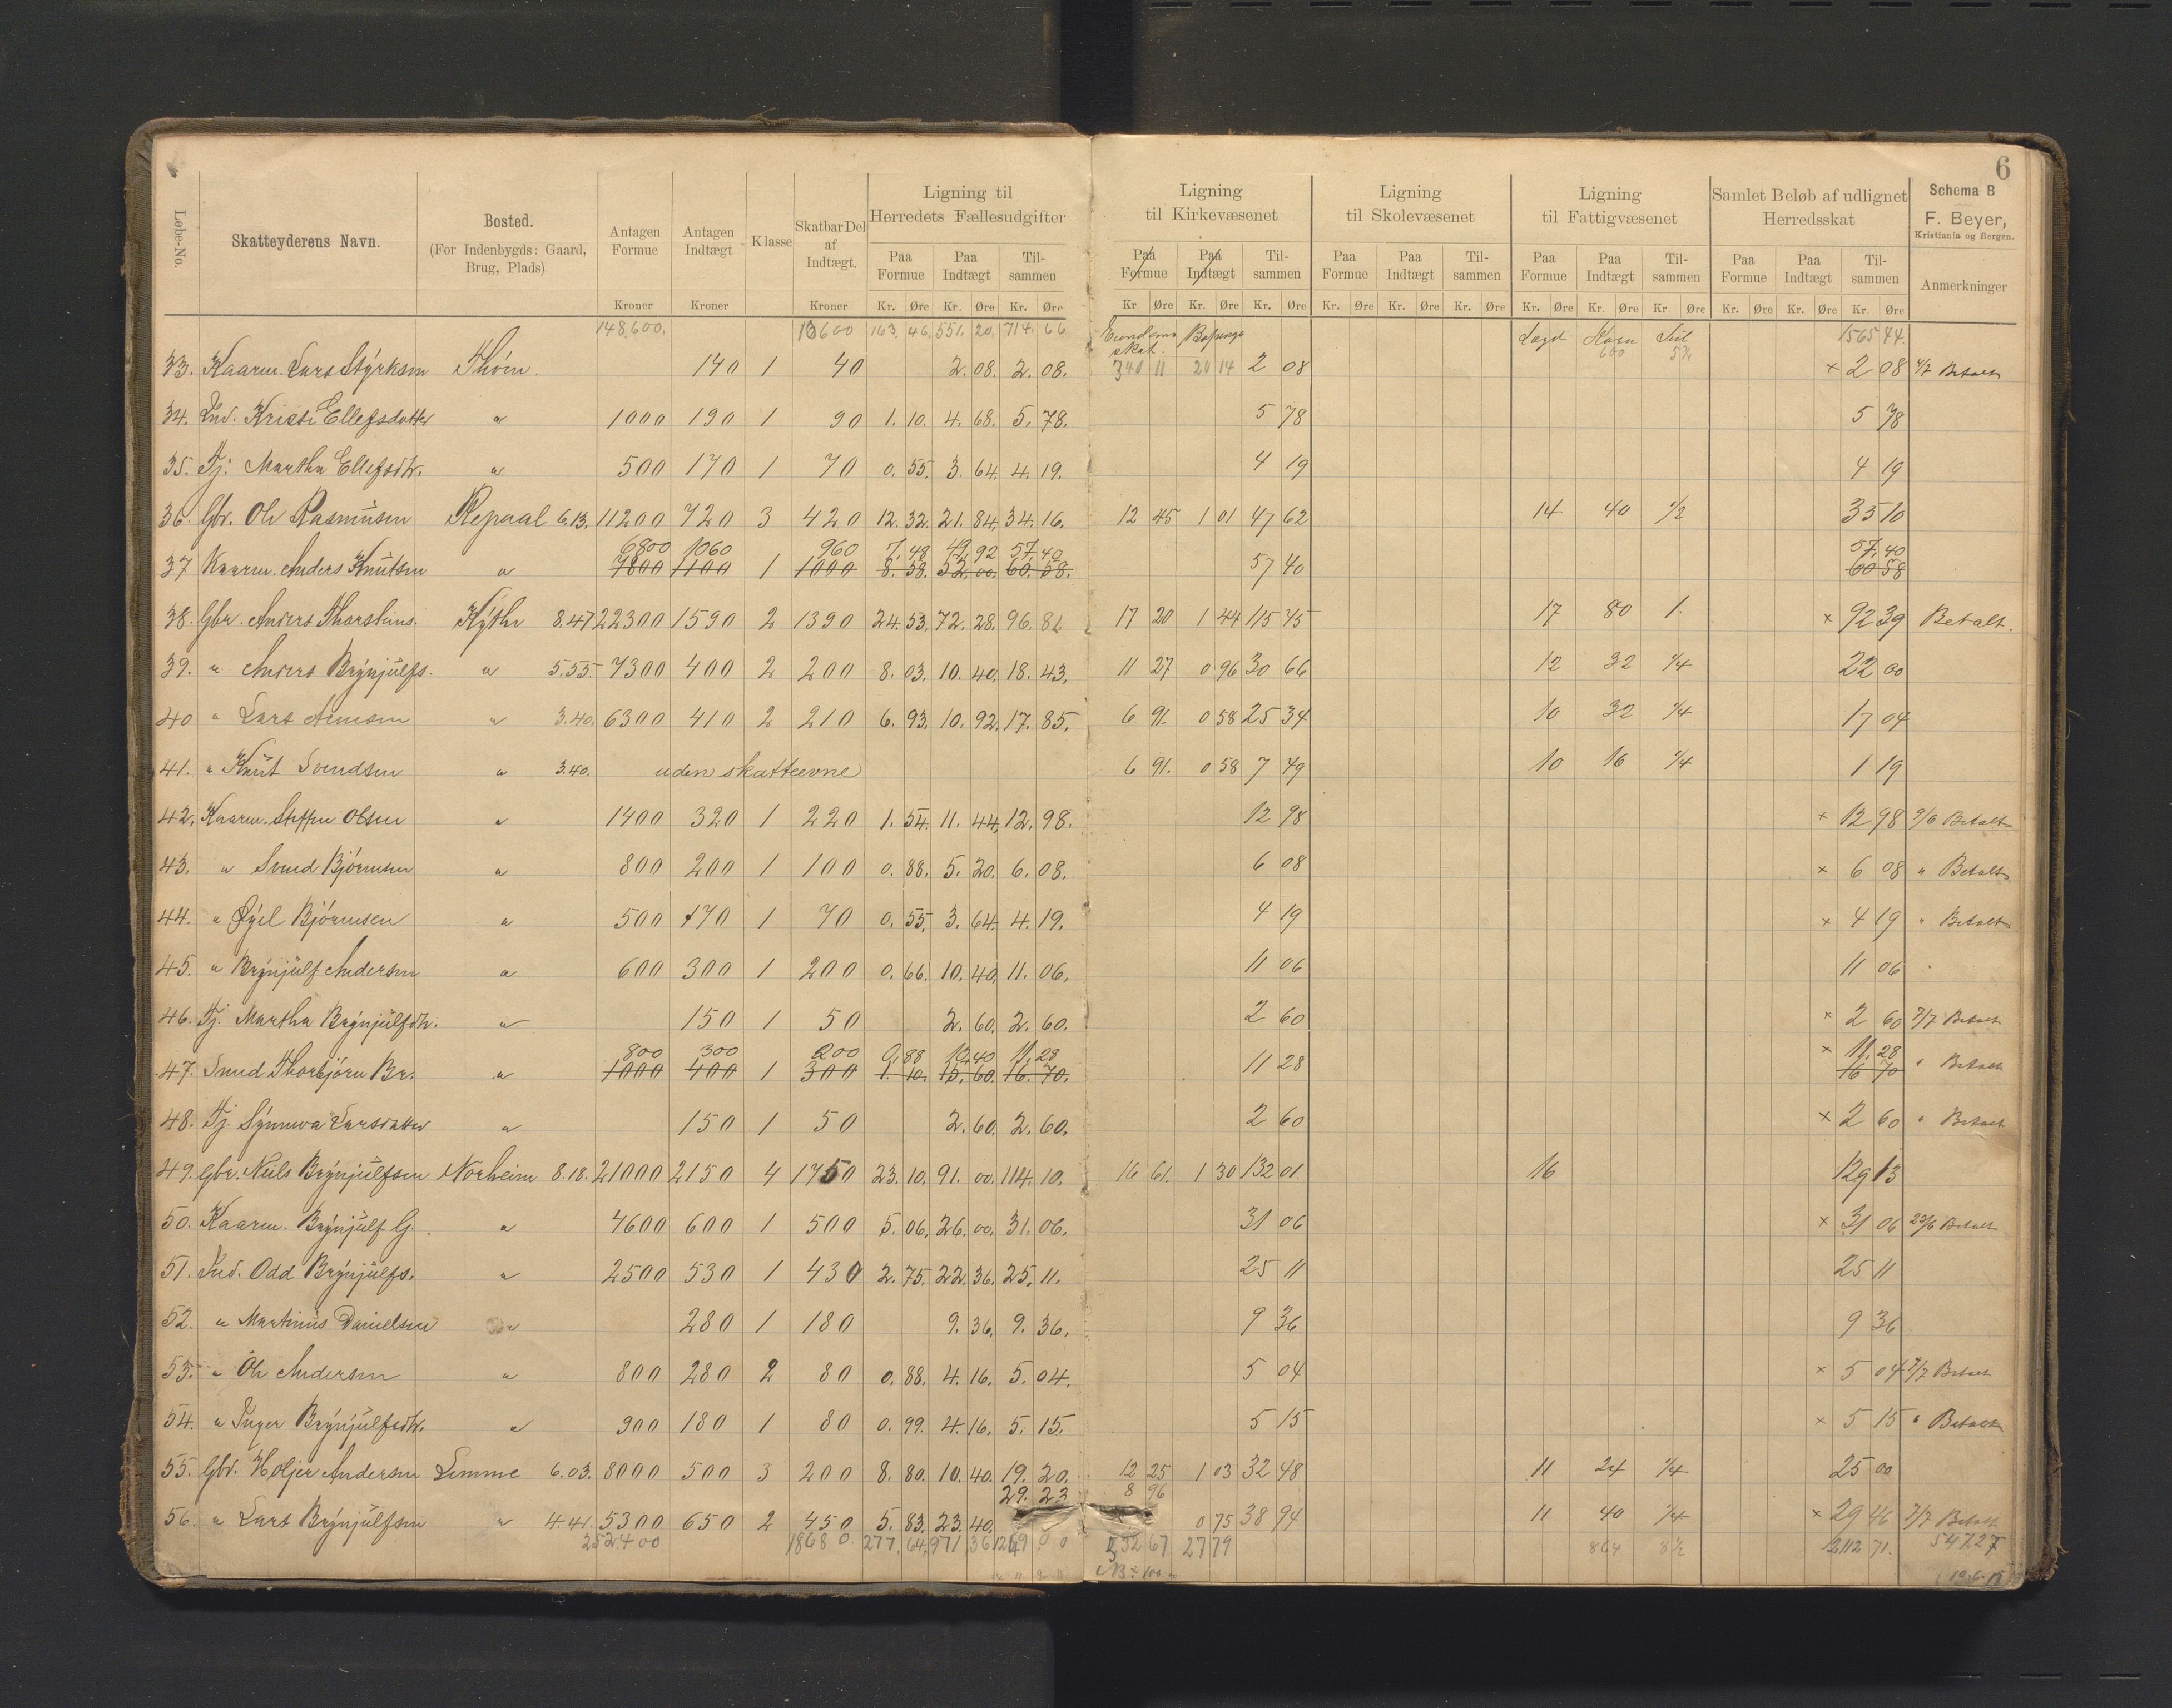 6
Løbe-No.
Skatteyderens Navn.
Bosted.
(For Indenbygds: Gaard, Brug, Plads)
Antagen Formue
Antagen Indtægt
Klasse
Skatbar Del af Indtægt.
Ligning til Herredets Fællesudgifter
Ligning til Kirkevæsenet
Ligning til Skolevæsenet
Ligning til Fattigvæsenet
Samlet Beløb af udlignet Herredsskat
Schema B
F. Beyer,
Kristiania og Bergen.
Anmerkninger
Paa Formue Paa Indtægt Tilsammen Paa Formue Paa Indtægt Tilsammen Paa Formue Paa Indtægt Tilsammen Paa Formue Paa Indtægt Tilsammen Paa Formue Paa Indtægt Tilsammen
Kroner Kroner Kroner Kr. Øre Kr. Øre Kr. Øre Kr. Øre Kr. Øre Kr. Øre Kr. Øre Kr. Øre Kr. Øre Kr. Øre Kr. Øre Kr. Øre Kr. Øre Kr. Øre Kr. Øre
148,600. 13600 163. 46. 551. 20. 714. 66 1565 44.
skat. 600
33. Kaarm. Lars Styrksen Thóm. 140 1 40 2. 08. 2. 08. 340 11 20 14 2 08 × 2 08 Betalt
34. Ind. Kristi Ellefsdotter " 1000 190 1 90 1. 10. 4. 68. 5. 78. 5 78 5 78
35. Tj. Martha Ellefsdtr. " 500 170 1 70 0. 55. 3. 64. 4. 19. 4 19 4 19
36. Gbr. Ole Rasmusen Repaal 6.13. 11200 720 3 420 12. 32. 21. 84. 34. 16. 12 45 1 01 47 62 14 40 1/2 35 10
6800 1060 960 7. 48 49. 92 57. 40 57. 40
37 Kaarm. Anders Knutsen " 7800 1100 1 1000 8. 58. 52. 00. 60. 58. 57 40 60 58
38. Gbr. Anders Thorsteins. Kythe 8.47 22300 1590 2 1390 24. 53. 72. 28. 96. 81 17 20 1 44 115 45 17 80 1. × 92 39 Betalt.
39. " Anders Brynjulfs. " 5.55. 7300 400 2 200 8. 03. 10. 40. 18. 43. 11 27 0 96 30 66 12 32 1/4 22 00
40 " Lars Arnesen " 3.40. 6300 410 2 210 6. 93. 10. 92. 17. 85. 6 91. 0 58 25 34 10 32 1/4 17 04
41. " Knut Svendsen " 3.40. uden skatteevne 6 91. 0 58 7 49 10 16 1/4 1 19
42. Kaarm. Steffen Olsen " 1400 320 1 220 1. 54. 11. 44. 12. 98. 12 98 × 12 98 Betalt
43. " Svend Bjórnsen " 800 200 1 100 0. 88. 5. 20. 6. 08. 6 08 × 6 08 " Betalt
44. " Egil Bjórnsen " 500 170 1 70 0. 55. 3. 64. 4. 19. 4 19 × 4 19 " Betalt
45. " Brynjulf Andersen " 600 300 1 200 0. 66. 10. 40. 11. 06. 11 06 11 06
46. Tj. Martha Brynjulfsdtr. " 150 1 50 2. 60. 2. 60. 2 60 × 2 60 7/7 Betalt
800 300 200 0. 88 10. 40 11. 28 × 11. 28
47. Smed Thorbjórn Br. " 1000 400 1 300 1. 10. 15. 60. 16. 70. 11 28 16 70 " Betalt
48. Tj. Synneva Larsdatter " 150 1 50 2. 60. 2. 60. 2 60 × 2 60 " Betalt
49. Gbr. Neils Brynjulfsen Norheim 8.18. 21000 2150 4 1750 23. 10. 91. 00. 114. 10. 16 61. 1 30 132 01. 16 129 13
50. Kaarm. Brynjulf G. " 4600 600 1 500 5. 06. 26. 00. 31. 06. 31 06 × 31 06 23/6 Betalt
51. Ind. Odd Brynjulfs. " 2500 530 1 430 2. 75. 22. 36. 25. 11. 25 11 25 11
52. " Martinus Danielsen " 280 1 180 9. 36. 9. 36. 9 36 9 36
53. " Ole Andersen " 800 280 2 80 0. 88. 4. 16. 5. 04. 5 04 × 5 04 7/7 Betalt
54. " Inger Brynjulfsdtr. " 900 180 1 80 0. 99. 4. 16. 5. 15. 5 15 × 5 15 " Betalt
55. Gbr. Holjer Andersen Lemme 6.03. 8000 500 3 200 8. 80. 10. 40. 19. 20. 12 25 1 03 32 48 11 24 1/4 25 00
29. 23 8 96
56. " Lars Brynjulfsen " 4.41. 5300 650 2 450 5. 83. 23. 40. 0 75 38 94 11 40 1/4 × 29 46 7/7 Betalt
252400 18680. 277. 64. 971 36 532 67 27 79 864 8 1/2 2112 71. 547.27